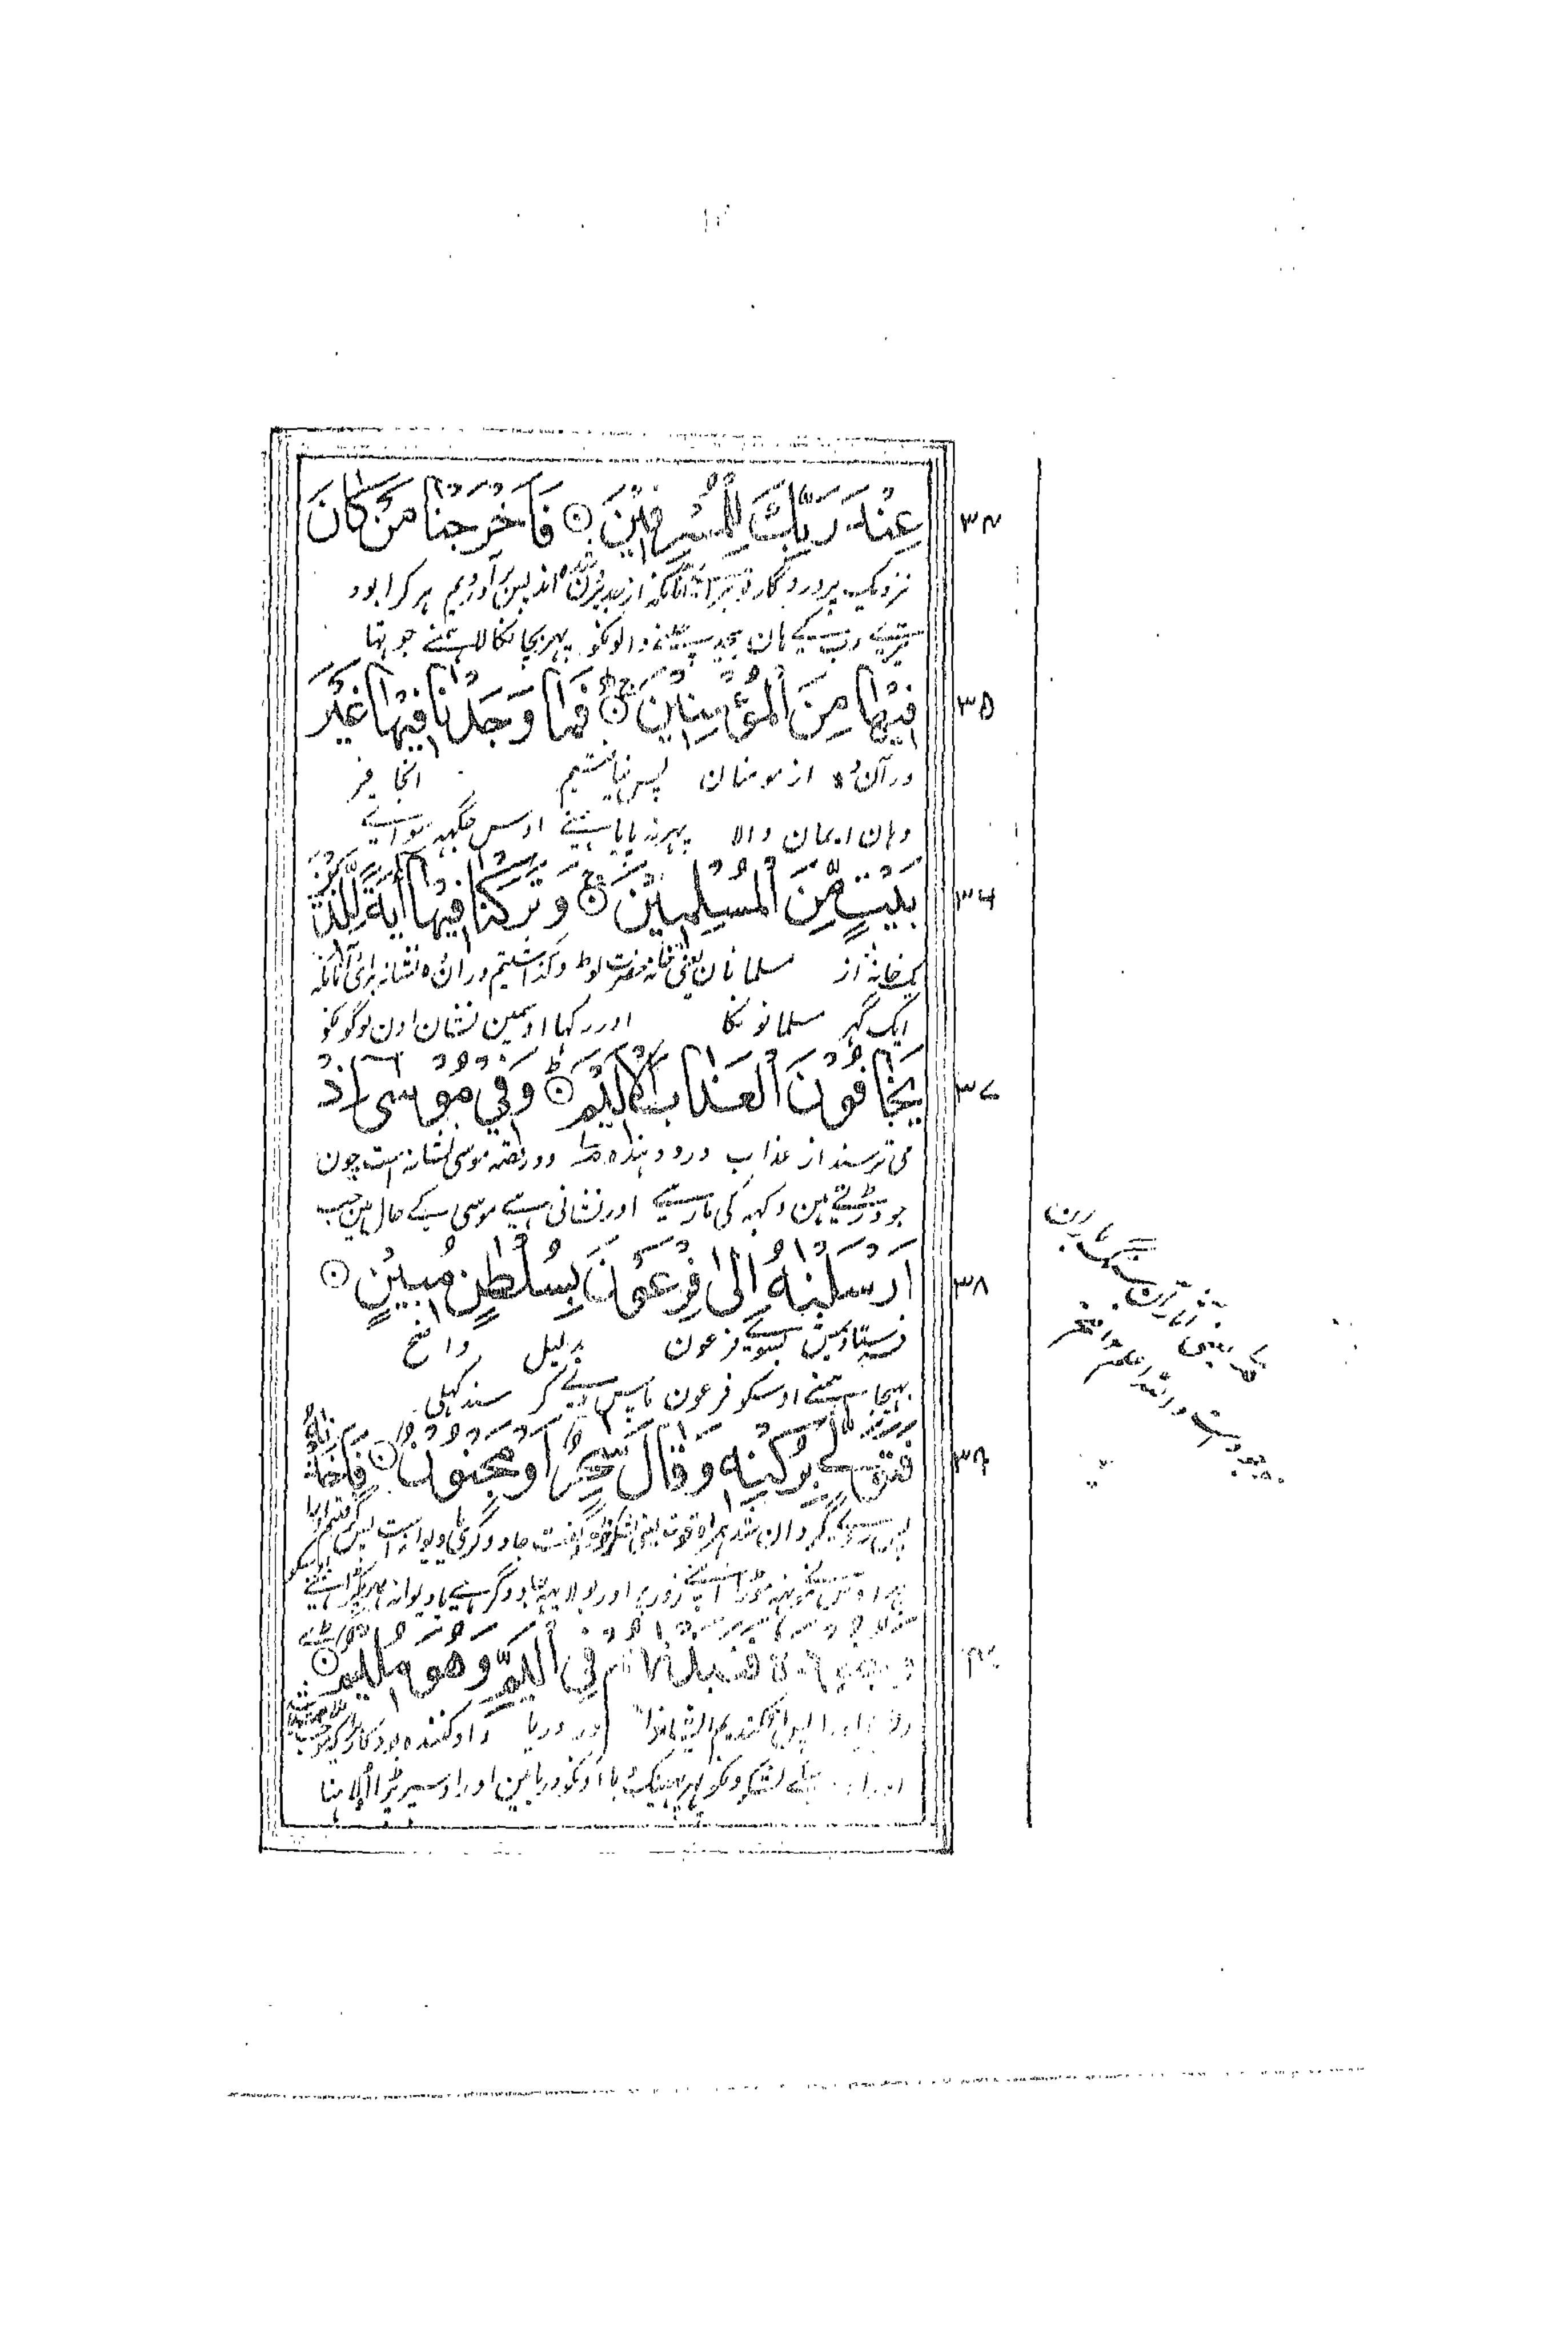 عِنْدَ رَبِّكَ لِلْمُسْرِفِيْنَ ۞ فَاَخْرَجْنَا مَنْ كَانَ ۳۴
نزدیک پروردگار تو برای آنانکه از حد بیرون شده اند پس برآوردیم هر کرا بود
تیرے رب کے ہان بیحد چلنے والونکو پہر بچا نکالا ہمنے جو تہا
فِيْهَا مِنَ الْمُؤْمِنِيْنَ ۞ فَمَا وَجَدْنَا فِيْهَا غَيْرَ ۳۵
در آن ده از مومنان پس نیافتیم انجا غیر
وہان ایمان والا پہر نہ پایا ہمنے اوس جگہہ سوائے
بَيْتٍ مِّنَ الْمُسْلِمِيْنَ ۞ وَتَرَكْنَا فِيْهَا اٰيَةً لِّلَّذِيْنَ ۳۶
یک خانه از مسلمانان یعنی خانه حضرت لوط و گذاشتیم در ان ده نشانه برای آنانکه
ایک گہر مسلمانونکا اور رکہا اوسمین نشان اون لوگونکو
يَخَافُوْنَ الْعَذَابَ الْاَلِيْمَ ۞ وَفِيْ مُوْسٰى اِذْ ۳۷
می ترسند از عذاب درد دهنده و در قصه موسی نشانه است چون
جو ڈرتے ہین دکہہ کی مار سے اور نشانی ہے موسی کے حال مین جب
اَرْسَلْنٰهُ اِلٰى فِرْعَوْنَ بِسُلْطٰنٍ مُّبِيْنٍ ۞ ۳۸
فرستادیمش بسوے فرعون بدلیل واضح
بہیجا ہمنے اوسکو فرعون پاس دیکر سند کہلی
فَتَوَلّٰى بِرُكْنِهٖ وَقَالَ سٰحِرٌ اَوْ مَجْنُوْنٌ ۞ فَاَخَذْنٰهُ ۳۹
پس رو گردان شد همراه قوت یعنی لشکر خود و گفت جادوگری یا دیوانه است پس گرفتیم اورا
پہر اوسنے مونہہ موڑا اپنے زور پر اور بولا یہہ جادوگر ہے یا دیوانہ پہر پکڑا ہمنے اوسکو
وَجُنُوْدَهٗ فَنَبَذْنٰهُمْ فِي الْيَمِّ وَهُوَ مُلِيْمٌ ۞ ۴۰
اورا پس افگندیم ایشانرا در دریا و او کننده بود
اور اوسکے لشکرونکو پہر پہینک دیا اونکو دریا مین اور اوسپر پڑا الاہنا